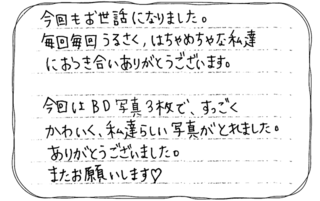 今回もお世話になりました。
毎回毎回うるさく、はちゃめちゃな私達
におつき合いありがとうございます。
今回はBD写真3枚で、すっごく
かわいく、私達らしい写真がとれました。
ありがとうございました。
またお願いします♡